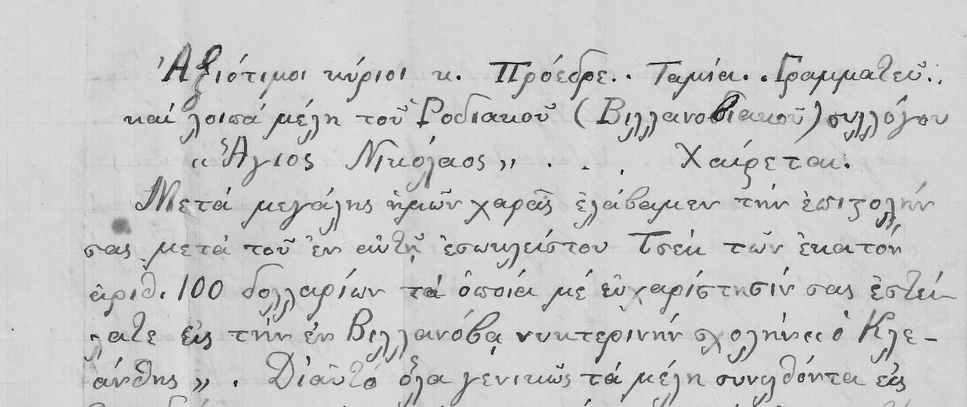 Ἀξιότιμοι κύριοι κ. Πρόεδρε.. Ταμία.. Γραμματεῦ..
καί λοιπά μέλη τοῦ Ροδιακοῦ (Βιλλανοβιακοῦ) συλλόγου
«Ἅγιος Νικόλαος» . . . Χαίρεται.
Μετά μεγάλης ἡμῶν χαρᾶς ἐλάβαμεν τήν ἐπιστολήν
σας μετά τοῦ ἐν αὐτῇ ἐσωκλείστου Τσέκ τῶν ἑκατόν
ἀριθ. 100 δολλαρίων τά ὁποία μέ εὐχαρίστησίν σας ἐστεί-
λατε εἰς τήν ἐν Βιλλανόβᾳ νυκτερινήν σχολήν «ὁ Κλε-
άνθης». Δι αὐτό ὅλα γενικῶς τά μέλη συνελθόντα εἰς